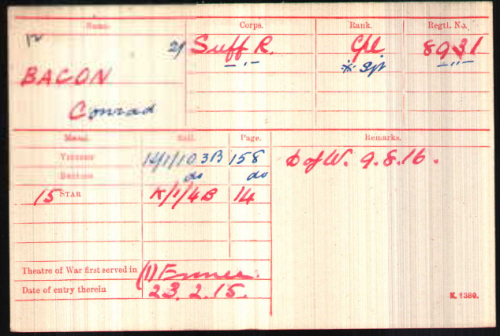 Name. Corps. Rank. Regtl. No.
2/ Suff R. Cpl 8931
BACON -"- * Sjt -"-
Conrad
Medal. Roll. Page. Remarks.
VICTORY H/1/103B 158 D of W. 9.8.16.
BRITISH do do
15 STAR K/1/4B 14
Theatre of War first served in (1) France.
Date of entry therein 23.2.15. K. 1380.